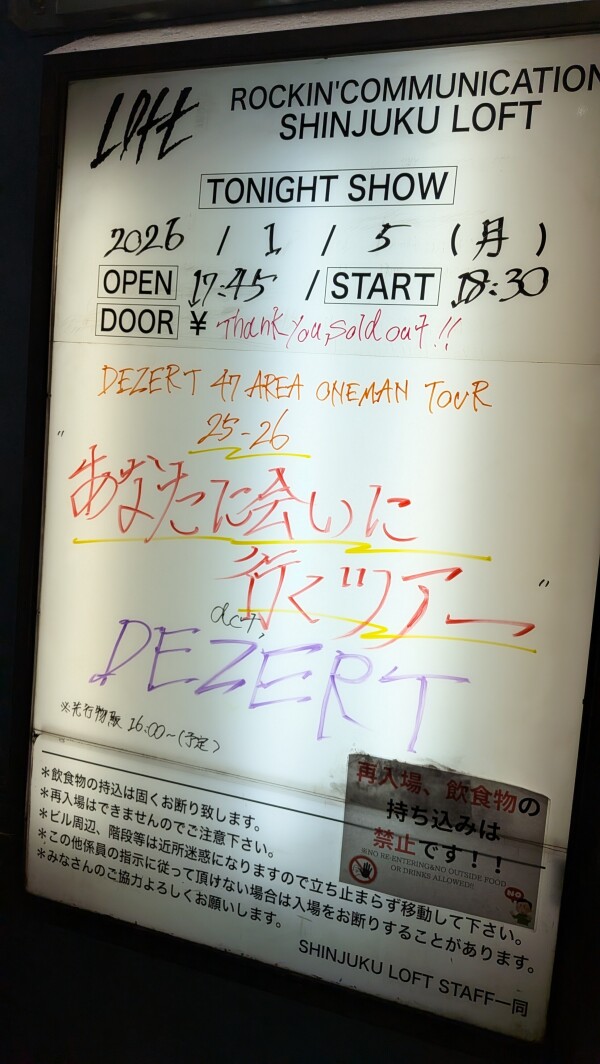 Loft
ROCKIN'COMMUNICATION
SHINJUKU LOFT
TONIGHT SHOW
2026 / 1 / 5 (月)
OPEN 17:45 / START 18:30
DOOR ¥ Thank you, sold out!!
DEZERT 47 AREA ONEMAN TOUR
25-26
"あなたに会いに
行くツアー"
act,
DEZERT
※先行物販 16:00~(予定)
＊飲食物の持込は固くお断り致します。
＊再入場はできませんのでご注意下さい。
＊ビル周辺、階段等は近所迷惑になりますので立ち止まらず移動して下さい。
＊この他係員の指示に従って頂けない場合は入場をお断りすることがあります。
＊みなさんのご協力よろしくお願いします。
SHINJUKU LOFT STAFF一同
再入場、飲食物の
持ち込みは
禁止です！！
※NO RE-ENTERING&NO OUTSIDE FOOD
OR DRINKS ALLOWED!!
NO